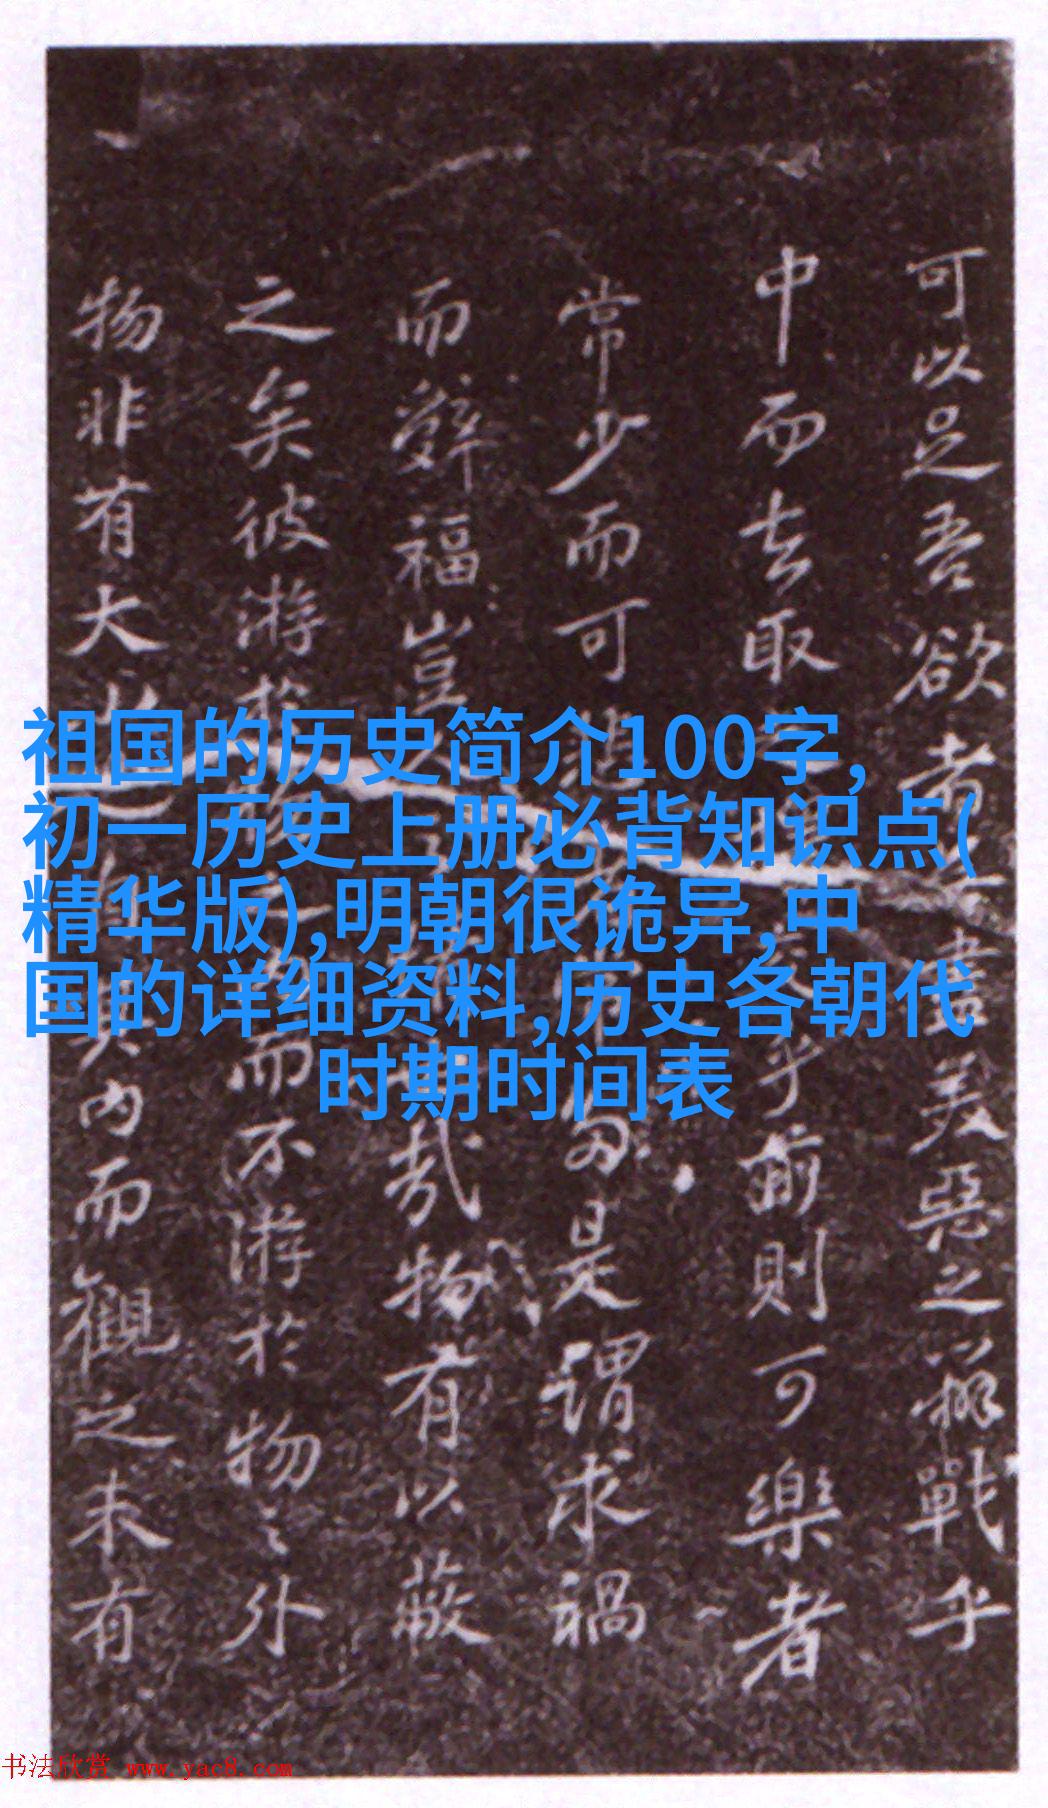 祖国的历史简介100字,
初一历史上册必背知识点(
精华版),明朝很诡异,中
国的详细资料,历史各朝代
时期时间表
可以足吾欲者盡美惡之辨戰乎
中而去取乎前則可樂者
常少而可悲是謂求禍
而辭福豈哉物有以蔽
之矣彼游於而不游於物之外
物非有大也其內而觀之未有
书法欣赏 www.yac8.com